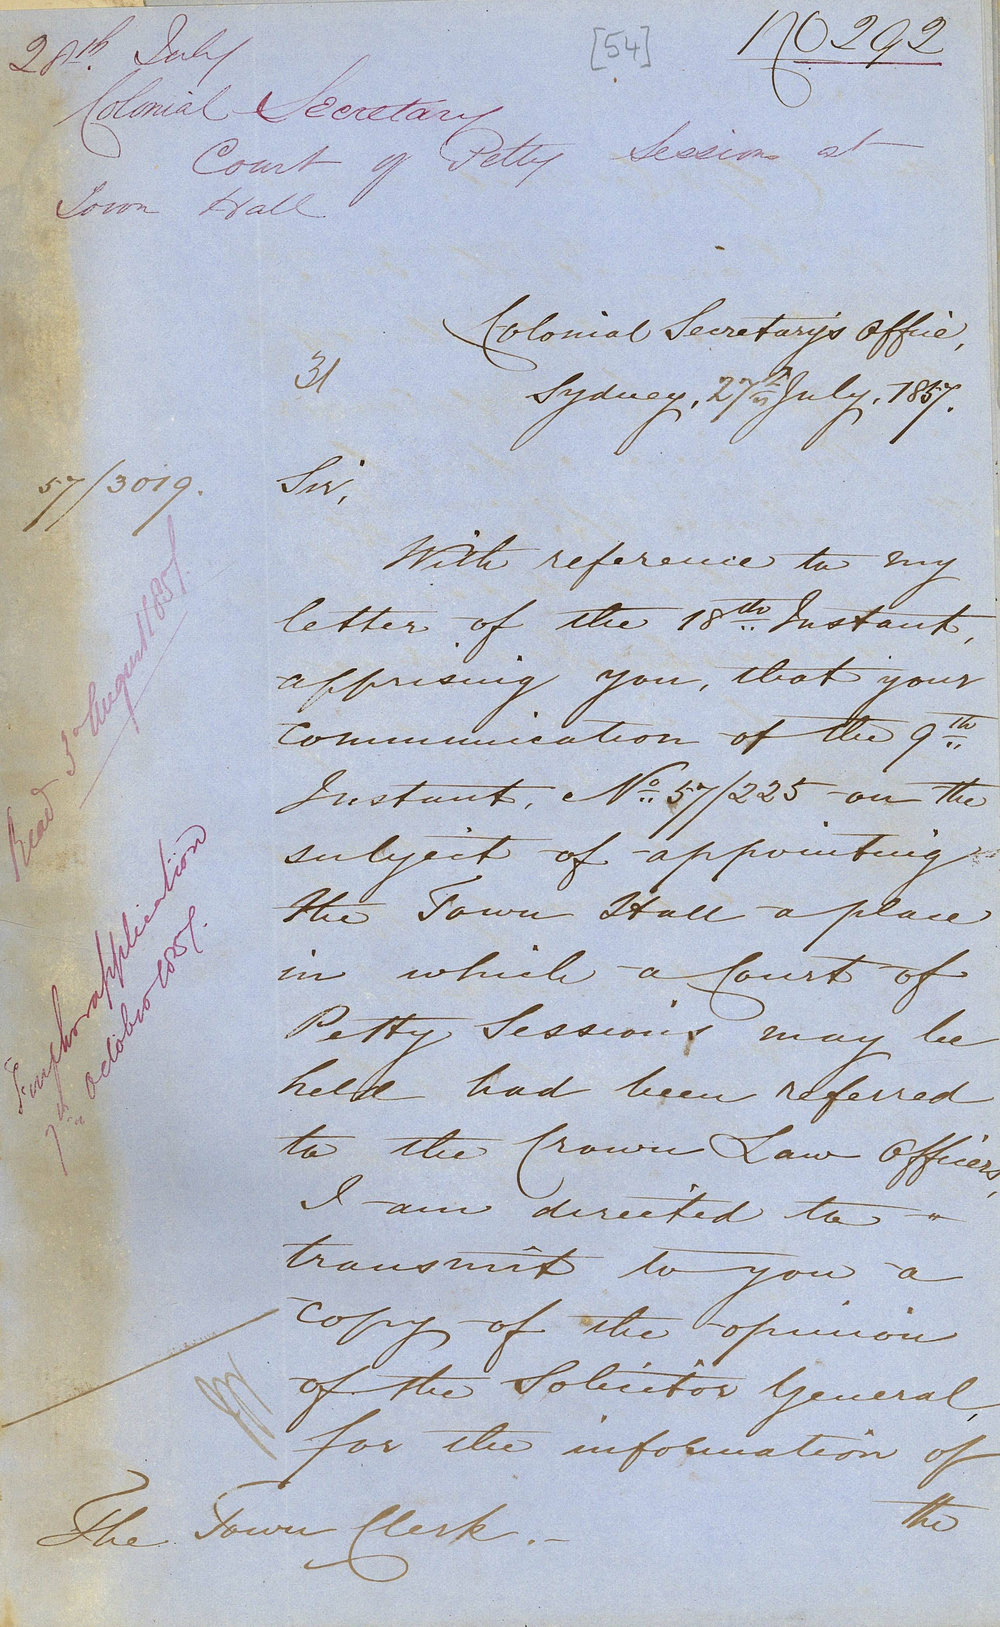 28th. July
[54]
No 292
Colonial Secretary
Court of Petty Sessions at
Town Hall
Colonial Secretary's Office,
31
Sydney, 27th July, 1857.
57/3019.
Sir,
With reference to my
letter of the 18th Instant,
apprising you, that your
communication of the 9th
Instant, No. 57/225 on the
subject of appointing
the Town Hall a place
in which a Court of
Petty Sessions may be
held had been referred
to the Crown Law Officers,
I am directed to "
transmit to you a
copy of the opinion
of the Solicitor General,
for the information of
the
The Town Clerk. -
Read 3d August 1857.
Further application
7th October 1857.